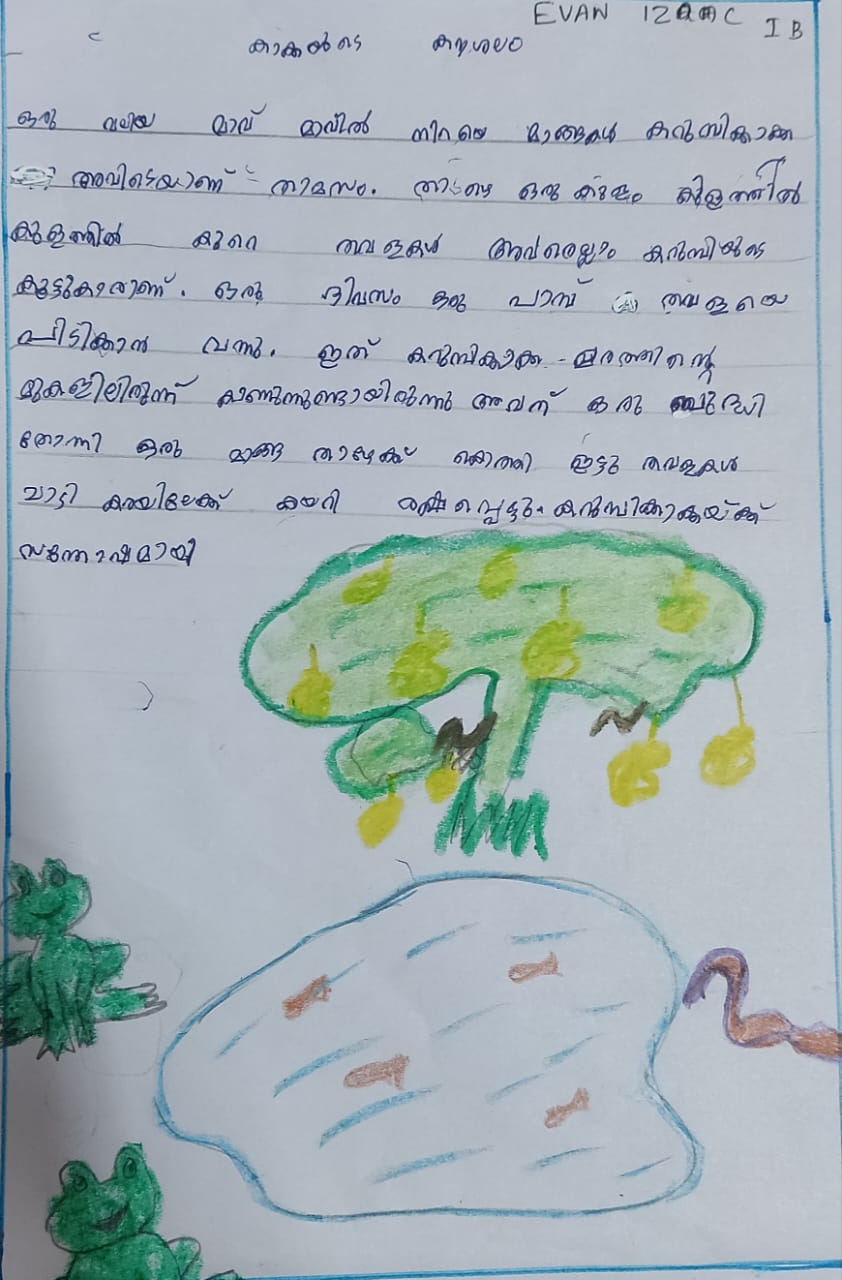 EVAN IZAAC I B
കാക്കയുടെ കൗശലം
ഒരു വലിയ മാവ് മാവിൽ നിറയെ മാങ്ങകൾ കറുമ്പികാക്ക
അവിടെയാണ് താമസം. താഴെ ഒരു കുളം കുളത്തിൽ
കുളത്തിൽ കുറെ തവളകൾ അവരെല്ലാം കറുമ്പിയുടെ
കൂട്ടുകാരാണ്. ഒരു ദിവസം ഒരു പാമ്പ് തവളയെ
പിടിക്കാൻ വന്നു. ഇത് കറുമ്പികാക്ക മരത്തിന്റെ
മുകളിലിരുന്ന് കാണുന്നുണ്ടായിരുന്നു അവന് ഒരു ബുദ്ധി
തോന്നി ഒരു മാങ്ങ താഴേക്ക് കൊത്തി ഇട്ടു തവളകൾ
ചാടി കരയിലേക്ക് കയറി രക്ഷപ്പെട്ടു. കറുമ്പികാക്കയ്ക്ക്
സന്തോഷമായി